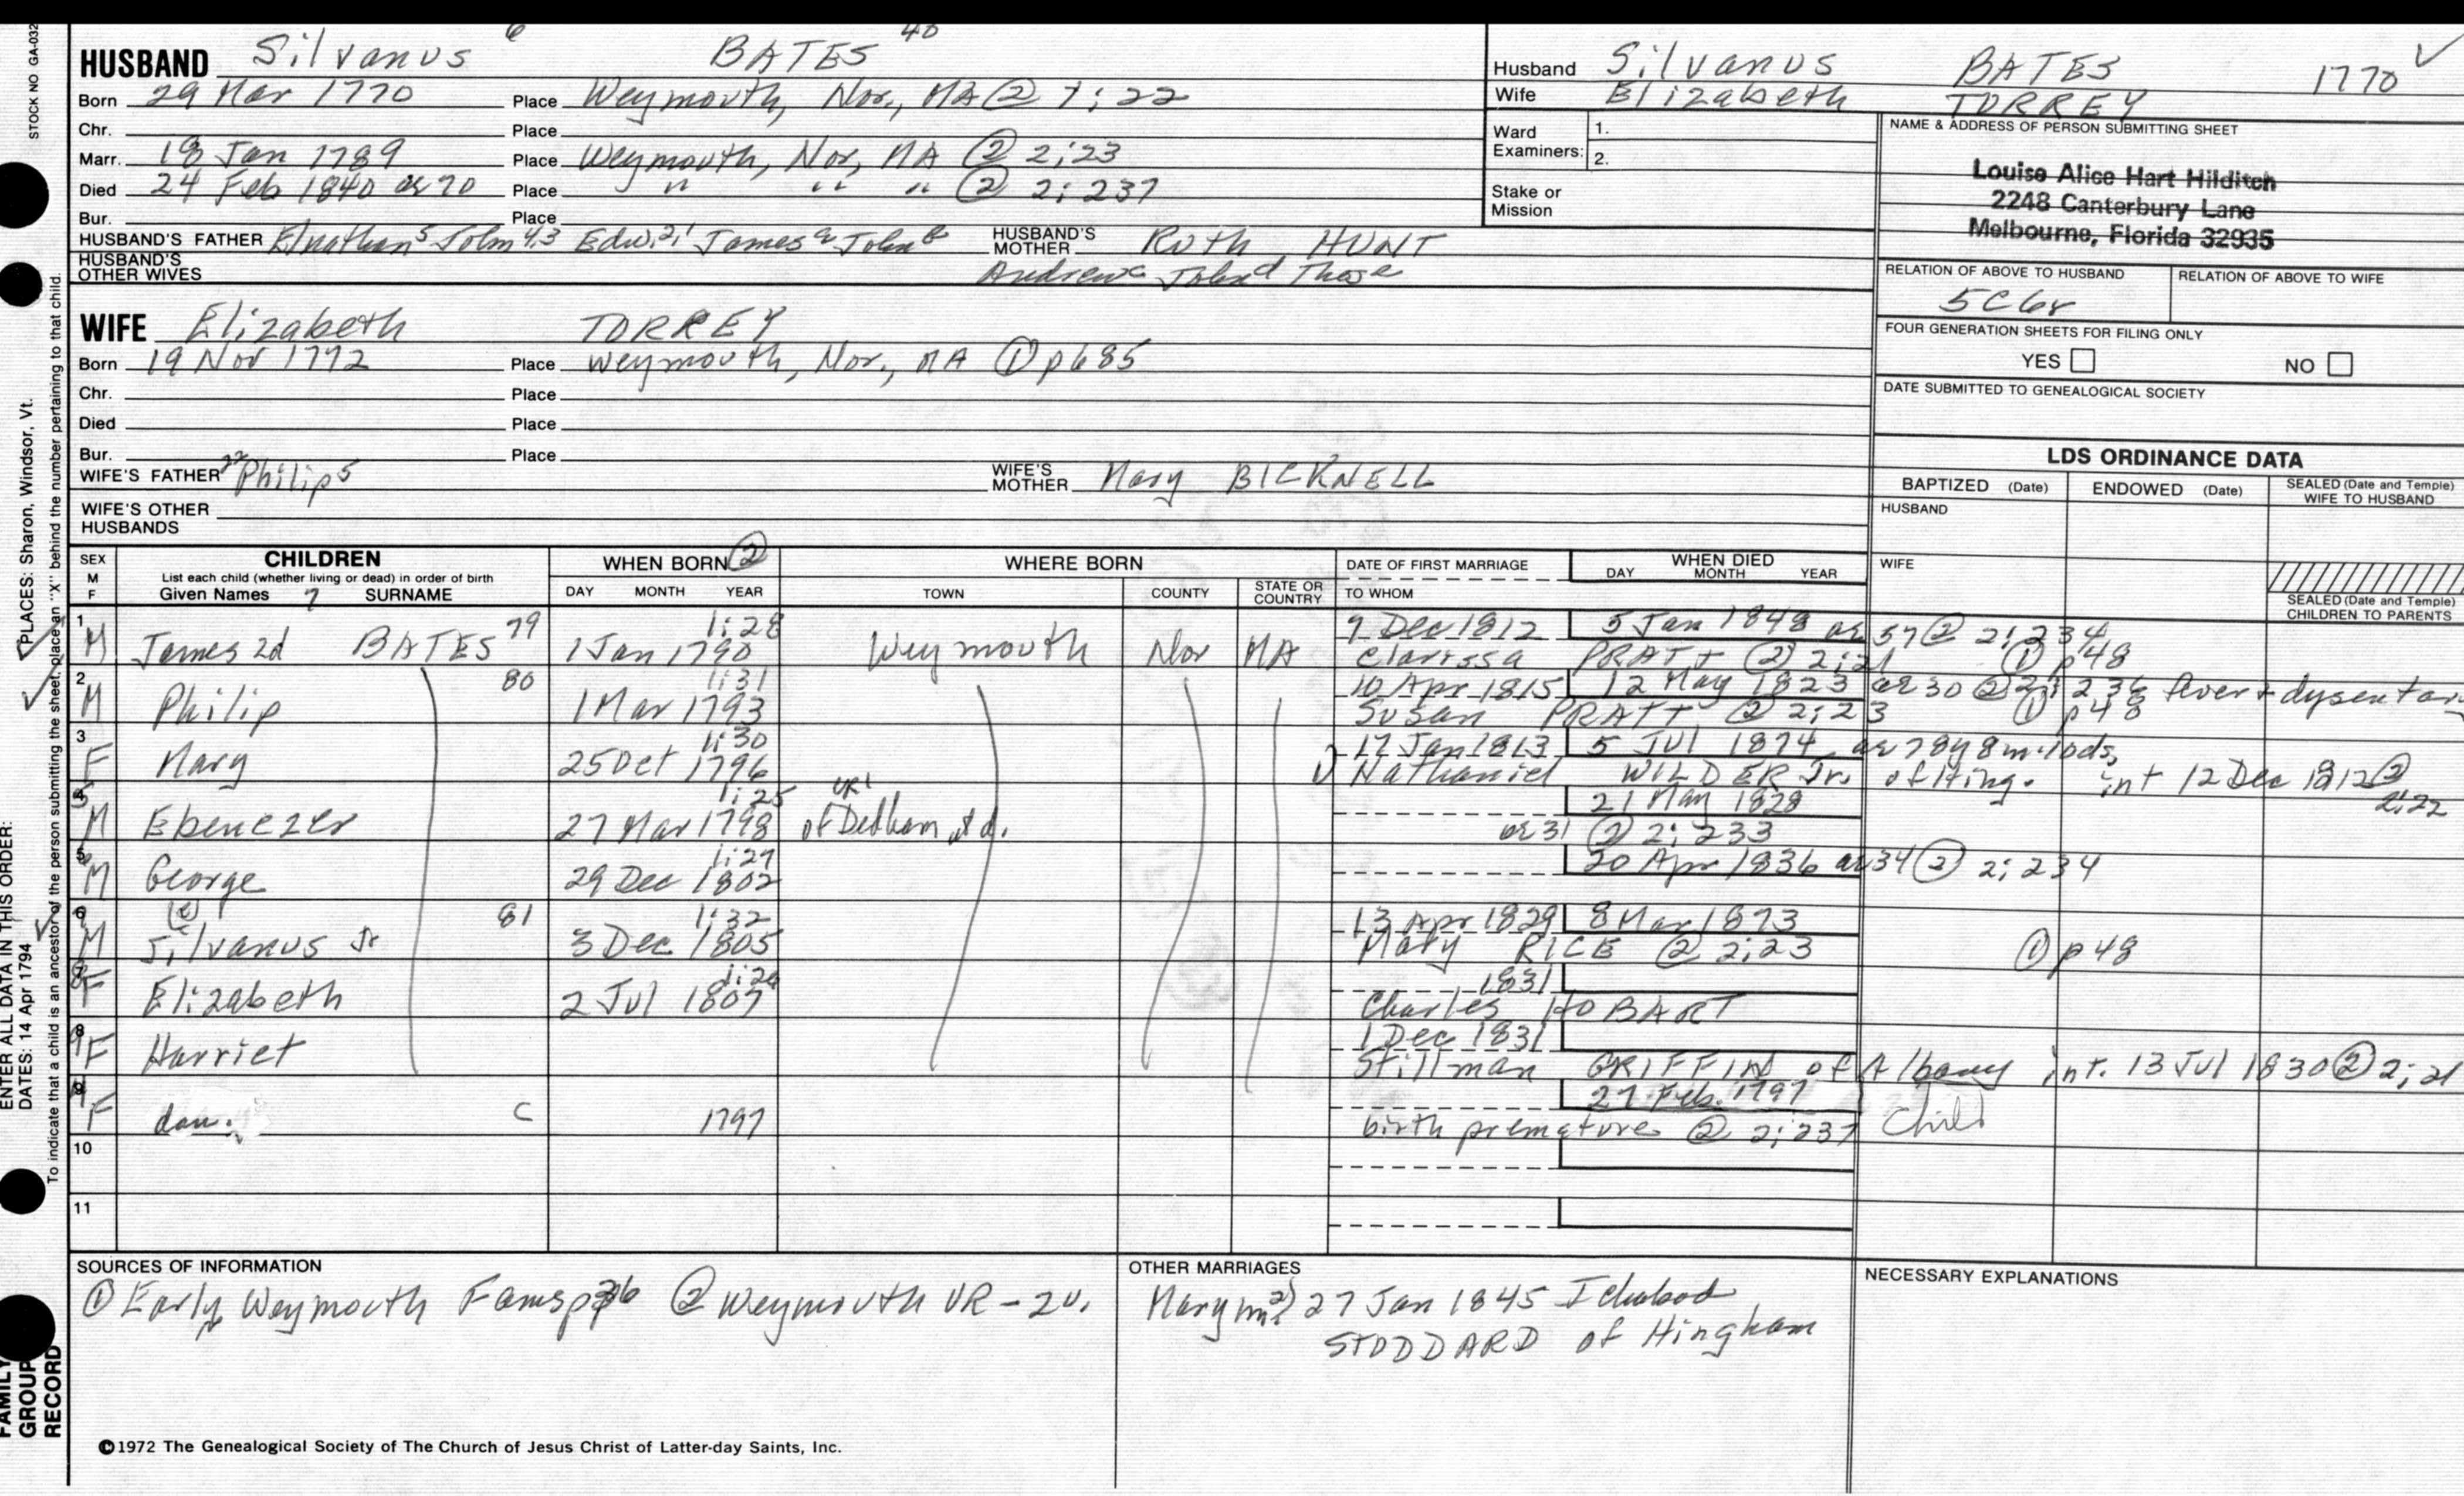 STOCK NO GA-032
HUSBAND Silvanus 6 BATES 40
Born 29 Mar 1770 Place Weymouth, Nor., MA ② 1:22
Chr. Place
Marr. 18 Jan 1789 Place Weymouth, Nor, MA ② 2:23
Died 24 Feb 1840 ae 70 Place " " " ② 2:237
Bur. Place
HUSBAND'S FATHER Elnathan5 John4,3 Edw.2,1 James a John b HUSBAND'S MOTHER Ruth HUNT
HUSBAND'S OTHER WIVES Andrew c John d Thos e
Husband Silvanus BATES 1770 ✓
Wife Elizabeth TORREY
Ward Examiners: 1.
2.
Stake or Mission
NAME & ADDRESS OF PERSON SUBMITTING SHEET
Louise Alice Hart Hilditch
2248 Canterbury Lane
Melbourne, Florida 32935
RELATION OF ABOVE TO HUSBAND RELATION OF ABOVE TO WIFE
5C6r
FOUR GENERATION SHEETS FOR FILING ONLY
YES NO
DATE SUBMITTED TO GENEALOGICAL SOCIETY
WIFE Elizabeth TORREY
Born 19 Nov 1772 Place Weymouth, Nor., MA ① p685
Chr. Place
Died Place
Bur. Place
WIFE'S FATHER 22 Philip5 WIFE'S MOTHER Mary BICKNELL
WIFE'S OTHER HUSBANDS
LDS ORDINANCE DATA
BAPTIZED (Date) ENDOWED (Date) SEALED (Date and Temple) WIFE TO HUSBAND
HUSBAND
WIFE
SEALED (Date and Temple) CHILDREN TO PARENTS
SEX M F CHILDREN WHEN BORN ② WHERE BORN DATE OF FIRST MARRIAGE WHEN DIED
List each child (whether living or dead) in order of birth
Given Names 7 SURNAME DAY MONTH YEAR TOWN COUNTY STATE OR COUNTRY TO WHOM DAY MONTH YEAR
1 79 1:28 9 Dec 1812 5 Jan 1848 ae 57 ② 2:234
M James 2d BATES 1 Jan 1790 Weymouth Nor MA Clarissa PRATT ② 2:21 ① p48
2 80 1:31 10 Apr 1815 12 May 1823 ae 30 ② 2:236 fever + dysentary
M Philip 1 Mar 1793 Susan PRATT ② 2:23 ① p48
3 1:30 17 Jan 1813 5 Jul 1874 ae 78y 8m 10ds,
F Mary 25 Oct 1796 Nathaniel WILDER Jr. of Hing. int 12 Dec 1812 ② 2:22
4 1:25 21 May 1828
M Ebenezer 27 Mar 1798 of Dedham at d. ae 31 ② 2:233
5 1:27 20 Apr 1836 ae 34 ② 2:234
M George 29 Dec 1802
6 81 1:32 13 Apr 1829 8 Mar 1873
M Silvanus Jr 3 Dec 1805 Mary RICE ② 2:23 ① p48
7 1:26 1831
F Elizabeth 2 Jul 1807 Charles HOBART
8 1 Dec 1831
F Harriet Stillman GRIFFIN of Albany int. 13 Jul 1830 ② 2:21
9 27 Feb. 1797
F dau. C 1797 birth premature ② 2:237 Child
10
11
SOURCES OF INFORMATION
① Early Weymouth Fams ② Weymouth VR - 2v.
OTHER MARRIAGES
Mary m2) 27 Jan 1845 Ichabod
STODDARD of Hingham
NECESSARY EXPLANATIONS
©1972 The Genealogical Society of The Church of Jesus Christ of Latter-day Saints, Inc.
FAMILY GROUP RECORD
ENTER ALL DATA IN THIS ORDER:
DATES: 14 Apr 1794 PLACES: Sharon, Windsor, Vt.
To indicate that a child is an ancestor of the person submitting the sheet, place an "X" behind the number pertaining to that child.